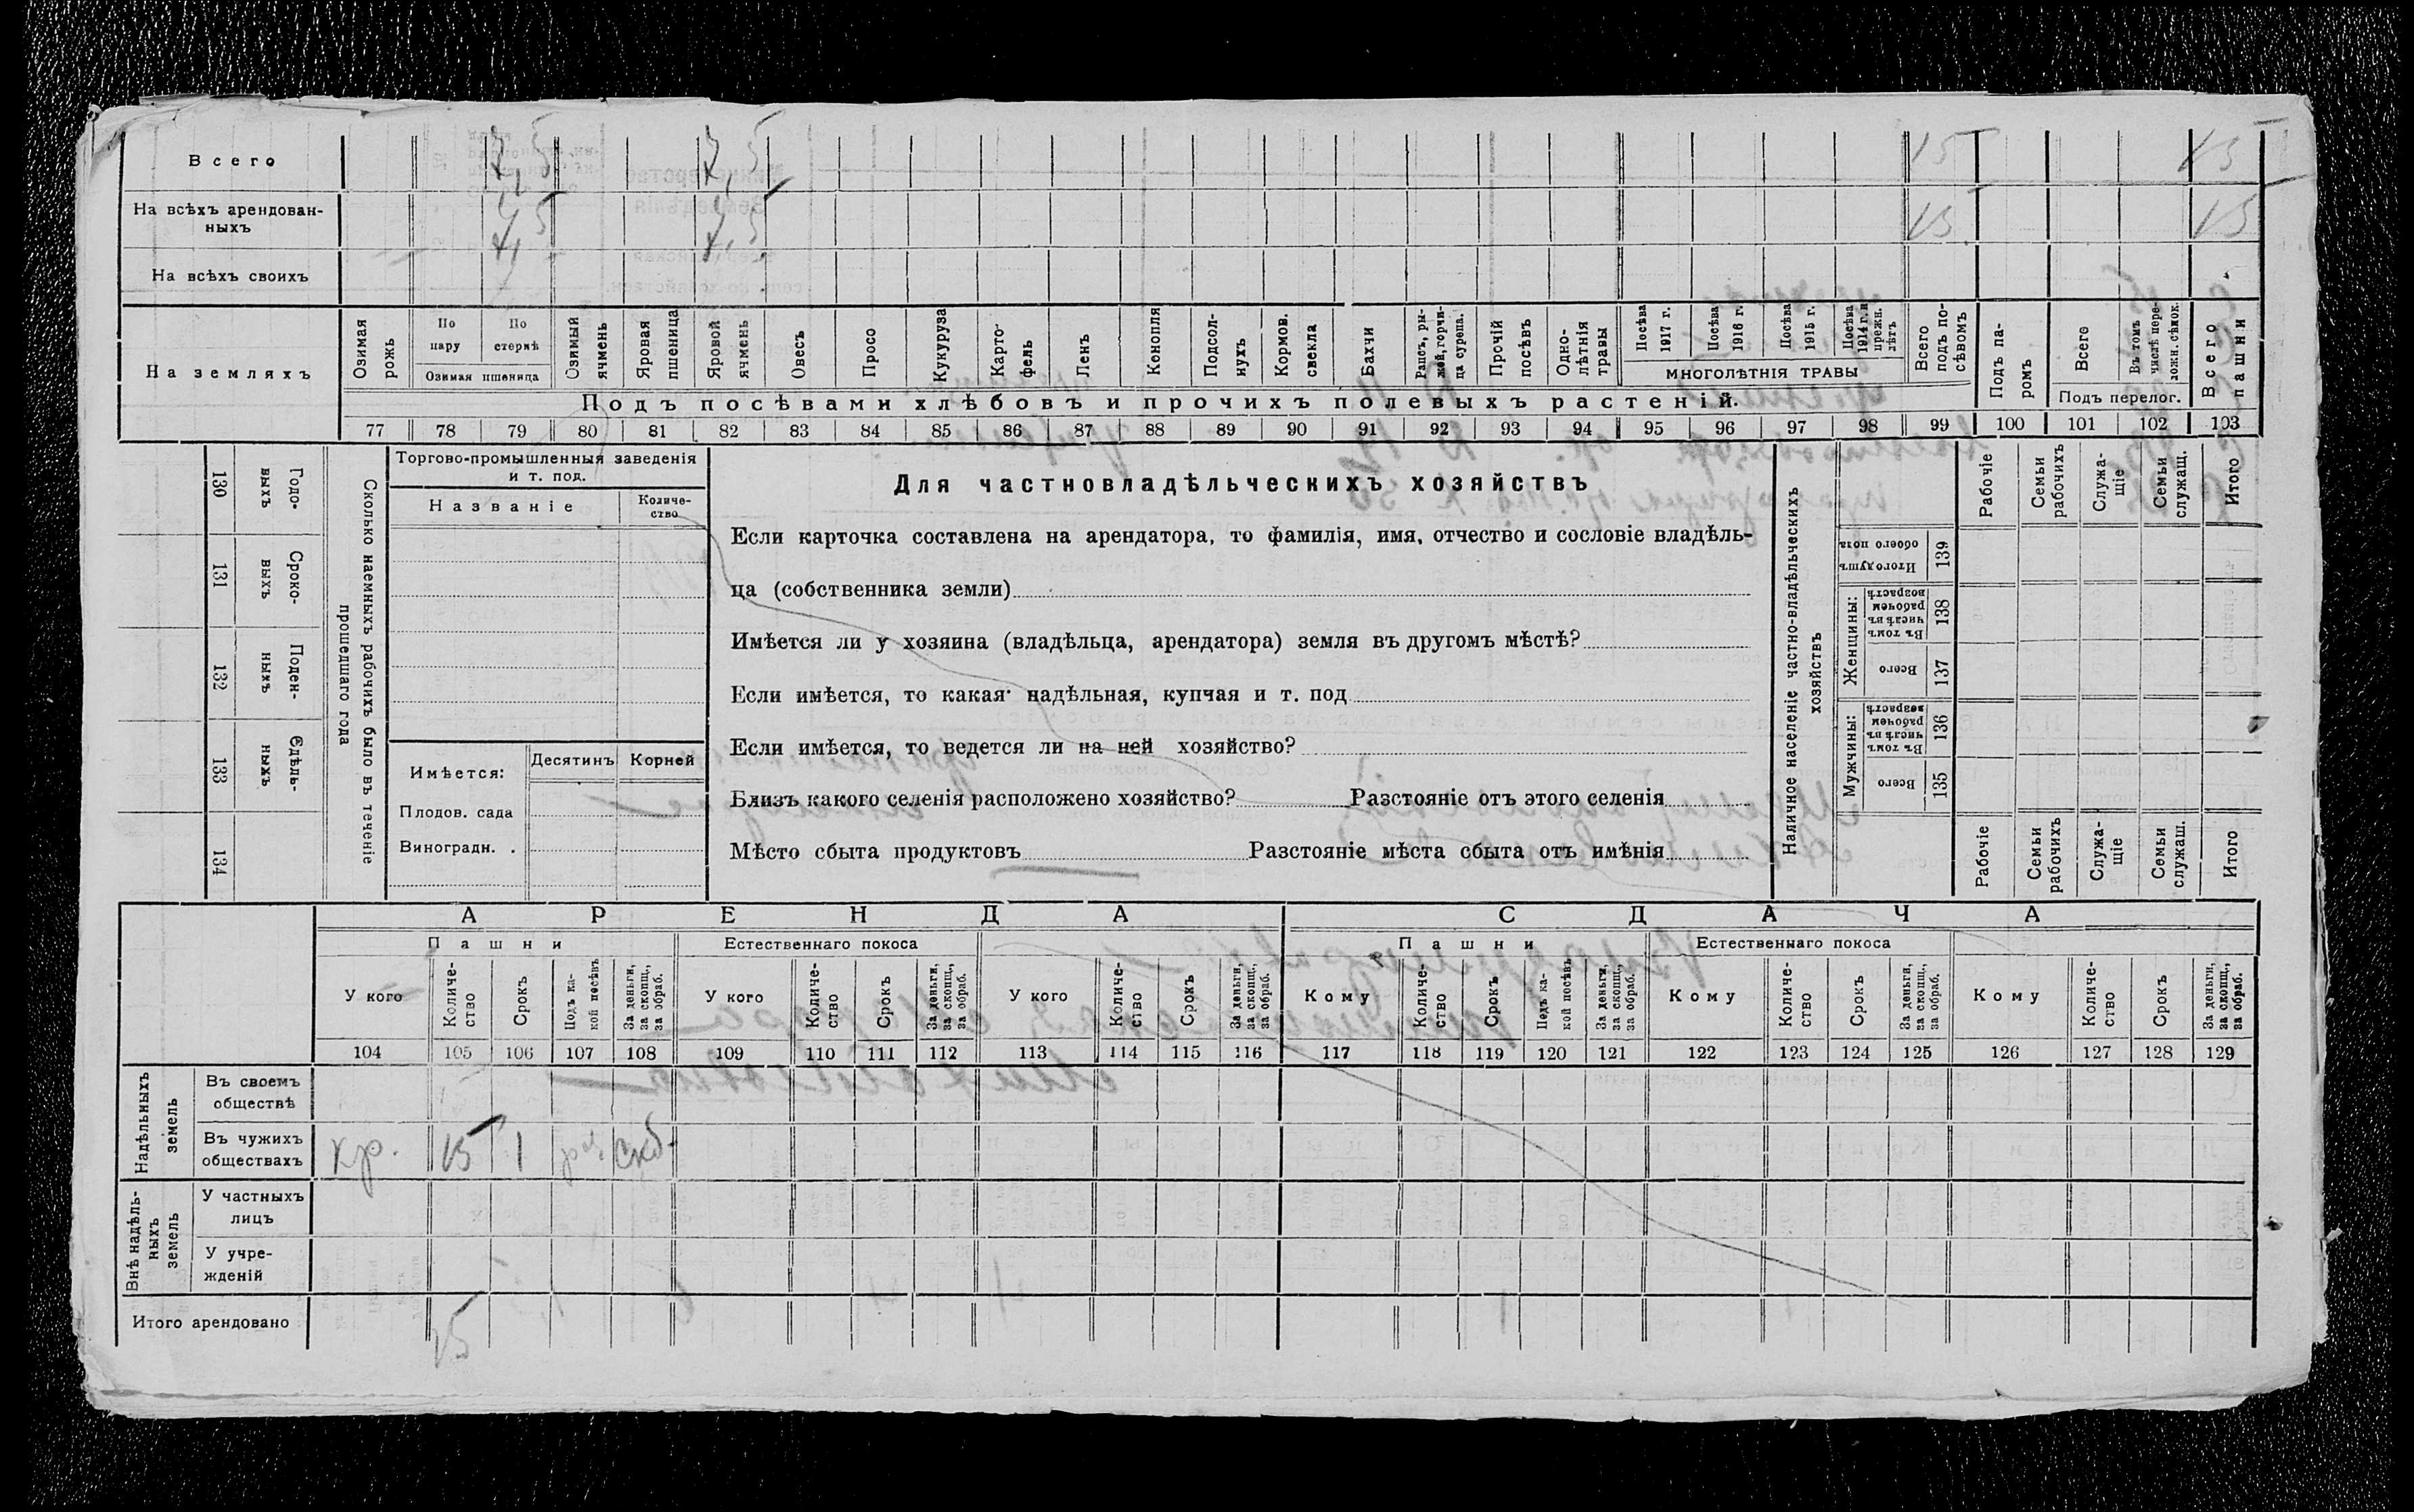 Всего 7,5 7,5 15 15
На всѣхъ арендован-
ныхъ 7,5 7,5 15 15
На всѣхъ своихъ
На земляхъ
Озимая рожь
По пару
По стернѣ
Озимая пшеница
Озимый ячмень
Яровая пшеница
Яровой ячмень
Овесъ
Просо
Кукуруза
Карто-
фель
Ленъ
Конопля
Подсол-
нухъ
Кормов. свекла
Бахчи
Рапсъ, ры-
жей, горчи-
ца сурепа.
Прочій посѣвъ
Одно-
лѣтнія травы
Посѣва 1917 г.
Посѣва 1916 г.
Посѣва 1915 г.
Посѣва 1914 г. и прежн. лѣтъ
МНОГОЛѢТНІЯ ТРАВЫ
Всего подъ по-
сѣвомъ
Подъ па-
ромъ
Всего
Въ томъ числѣ пере-
ложн. сѣнок.
Подъ перелог.
Всего пашни
Подъ посѣвами хлѣбовъ и прочихъ полевыхъ растеній.
77 78 79 80 81 82 83 84 85 86 87 88 89 90 91 92 93 94 95 96 97 98 99 100 101 102 103
Сколько наемныхъ рабочихъ было въ теченіе
прошедшаго года
Годо-
выхъ
130
Сроко-
выхъ
131
Поден-
ныхъ
132
Сдѣль-
ныхъ
133
134
Торгово-промышленныя заведенія
и т. под.
Названіе
Количе-
ство
Имѣется:
Десятинъ
Корней
Плодов. сада
Виноградн. .
Для частновладѣльческихъ хозяйствъ
Если карточка составлена на арендатора, то фамилія, имя, отчество и сословіе владѣль-
ца (собственника земли)
Имѣется ли у хозяина (владѣльца, арендатора) земля въ другомъ мѣстѣ?
Если имѣется, то какая· надѣльная, купчая и т. под
Если имѣется, то ведется ли на ней хозяйство?
Близъ какого селенія расположено хозяйство? Разстояніе отъ этого селенія
Мѣсто сбыта продуктовъ Разстояніе мѣста сбыта отъ имѣнія
Наличное населеніе частно-владѣльческихъ
хозяйствъ
Рабочіе
Семьи рабочихъ
Служа-
щіе
Семьи служащ.
Итого
Итого душъ обоего пола
139
Женщины:
Въ томъ числѣ въ рабочем возрастѣ
138
Всего
137
Мужчины:
Въ томъ числѣ въ рабочем возрастѣ
136
Всего
135
Рабочіе
Семьи рабочихъ
Служа-
щіе
Семьи служащ.
Итого
АРЕНДА
СДАЧА
Пашни
Естественнаго покоса
Пашни
Естественнаго покоса
У кого
Количе-
ство
Срокъ
Подъ ка-
кой посѣвъ
За деньги, за скопщ., за обраб.
У кого
Количе-
ство
Срокъ
За деньги, за скопщ., за обраб.
У кого
Количе-
ство
Срокъ
За деньги, за скопщ., за обраб.
Кому
Количе-
ство
Срокъ
Подъ ка-
кой посѣвъ
За деньги, за скопщ., за обраб.
Кому
Количе-
ство
Срокъ
За деньги, за скопщ., за обраб.
Кому
Количе-
ство
Срокъ
За деньги, за скопщ., за обраб.
104 105 106 107 108 109 110 111 112 113 114 115 116 117 118 119 120 121 122 123 124 125 126 127 128 129
Надѣльныхъ
земель
Въ своемъ
обществѣ
Въ чужихъ
обществахъ
кр. 15 1
Внѣ надѣль-
ныхъ
земель
У частныхъ
лицъ
У учре-
жденій
Итого арендовано 15